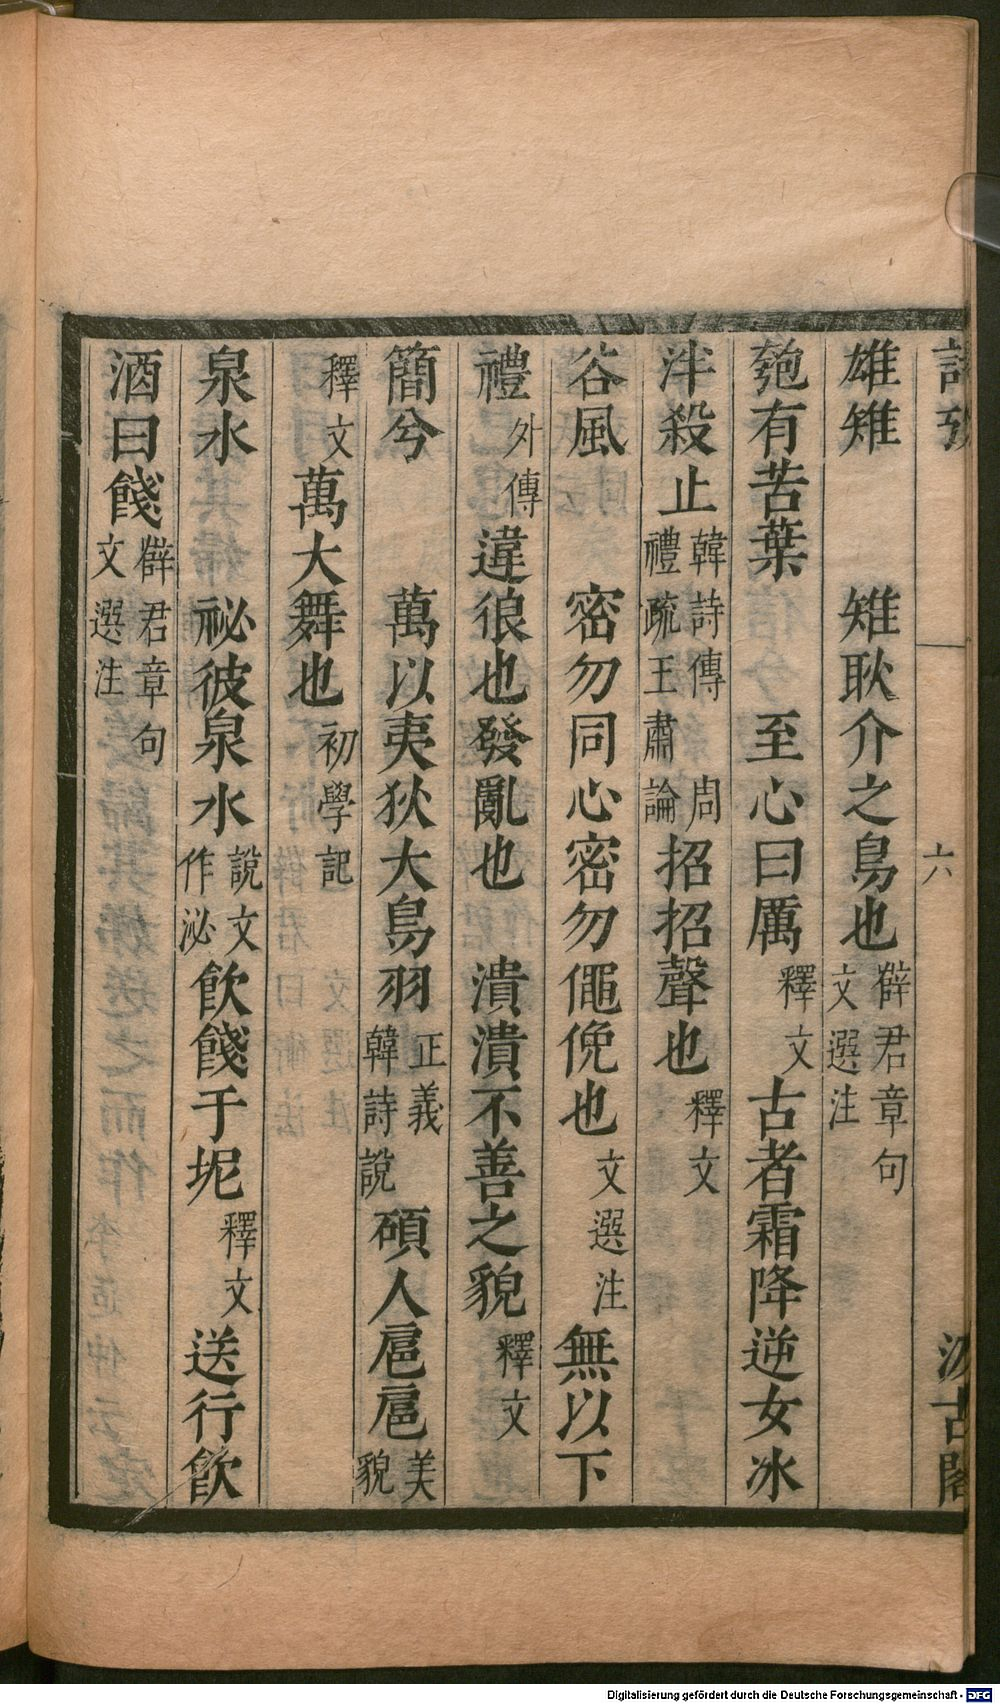 詩攷
六
汲古閣
雄雉　雉耿介之鳥也薛君章句文選注
匏有苦葉　至心曰厲釋文古者霜降逆女冰
泮殺止韓詩傳　周禮疏王肅論招招聲也釋文
谷風　密勿同心密勿僶俛也文選注無以下
禮外傳違很也發亂也　潰潰不善之貌釋文
簡兮　萬以夷狄大鳥羽正義韓詩說　碩人扈扈美貌
釋文萬大舞也初學記
泉水　祕彼泉水說文作泌飲餞于坭釋文　送行飲
酒曰餞薛君章句文選注
Digitalisierung gefördert durch die Deutsche Forschungsgemeinschaft - DFG